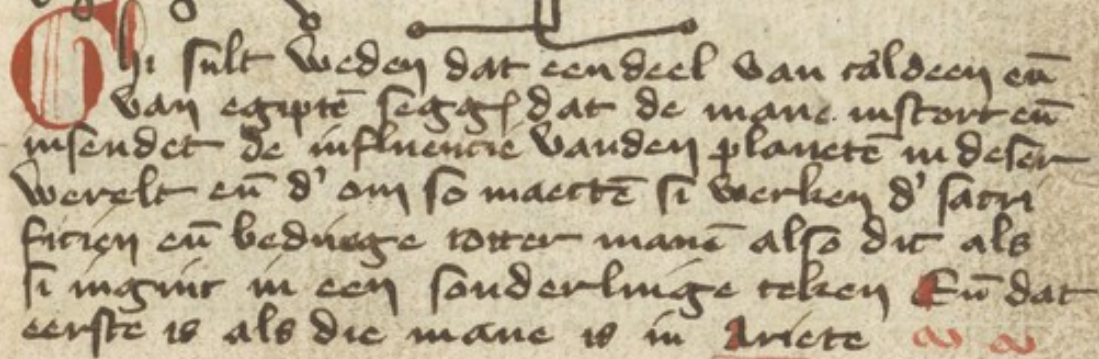 Ghi sult weden dat een deel van caldeen en̄
van egiptē segḡ dat de mane instort en̄
insendet de influencie vanden planetē in deser
werelt en̄ d' om so maectē si werken d' sacri
ficien en̄ bedinge totter manē also dit als
si ingint in een sonderlinge teken En̄ dat
eerste is als die mane is in Ariete